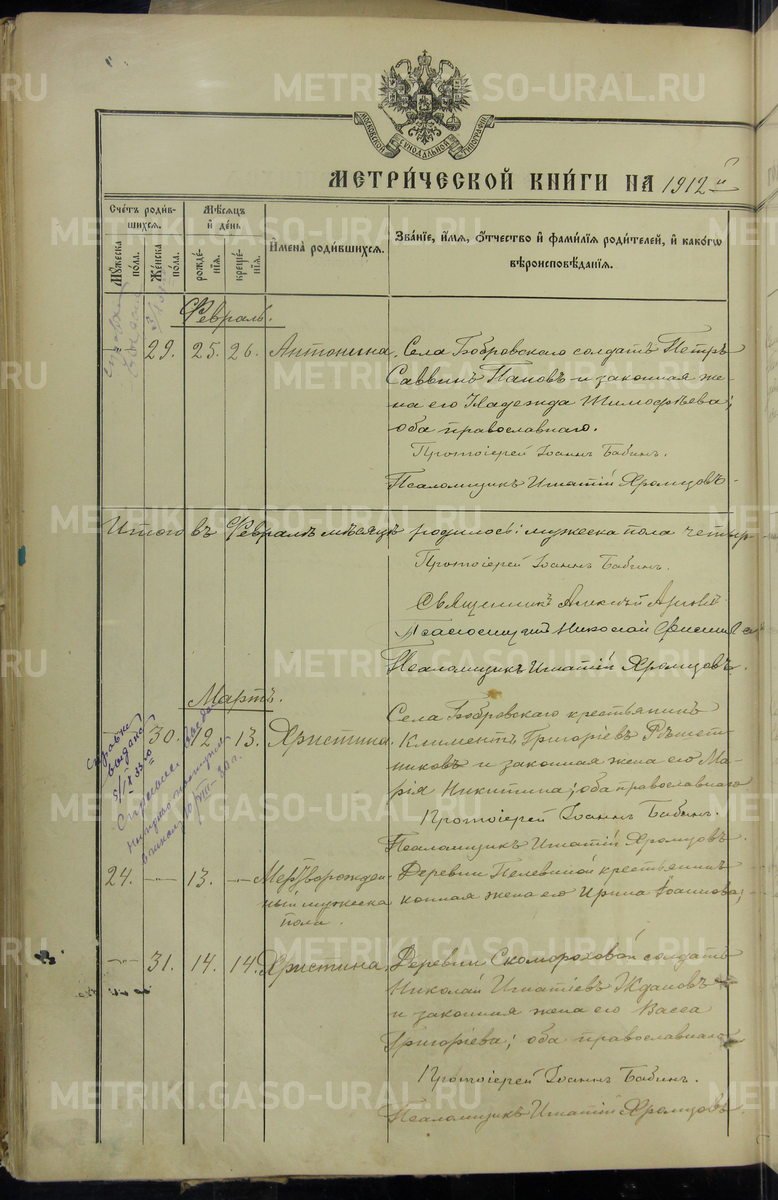 МОСКОВСКОЙ СѴНОДАЛЬНОЙ ТИПОГРАФІИ
МЕТРИЧЕСКОЙ КНИГИ НА 1912 й
Счетъ родившихся.
Мужеска пола.
Женска пола.
Мѣсяцъ и день
рожденія.
крещенія.
Имена родившихся.
Званіе, имя, отчество и фамилія родителей, и какогѡ
вѣроисповѣданія.
Февраль.
29. 25. 26. Антонина. Села Бобровскаго солдатъ Петръ
Саввинъ Пановъ и законная же-
на его Надежда Тимофѣева;
оба православнаго.
Протоіерей Іоаннъ Бабинъ.
Псаломщикъ Игнатій Хромцовъ.
Итого въ Февралѣ мѣсяцѣ родилось: мужеска пола четыр-
Протоіерей Іоаннъ Бабинъ.
Священникъ Алексій
Псаломщикъ Николай
Псаломщикъ Игнатій Хромцовъ.
Мартъ.
Справка
выдана
30. 12. 13. Христина. Села Бобровскаго крестьянинъ
Климентъ Григоріевъ Рѣшет-
никовъ и законная жена его Ма-
рія Никитина; оба православнаго
Протоіерей Іоаннъ Бабинъ.
Псаломщикъ Игнатій Хромцовъ.
24. — 13. — Мертворожден-
ный мужеска
пола.
Деревни Пелевиной крестьянинъ
конная жена его Ирина Іоаннова;
31. 14. 14. Христина. Деревни Скомороховой солдатъ
Николай Игнатіевъ Ждановъ
и законная жена его Васса
Григоріева; оба православнаго
Протоіерей Іоаннъ Бабинъ.
Псаломщикъ Игнатій Хромцовъ.
METRIKI.GASO-URAL.RU